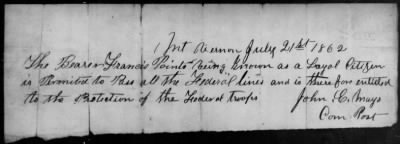 Mt Vernon July 21st 1862
The Bearer Francis Points being known as a Loyal Citizen
is Permited to Pass all the Federal lines and is therefore entitled
to the Protection of the Federal troops John C. Mays
Com. Post